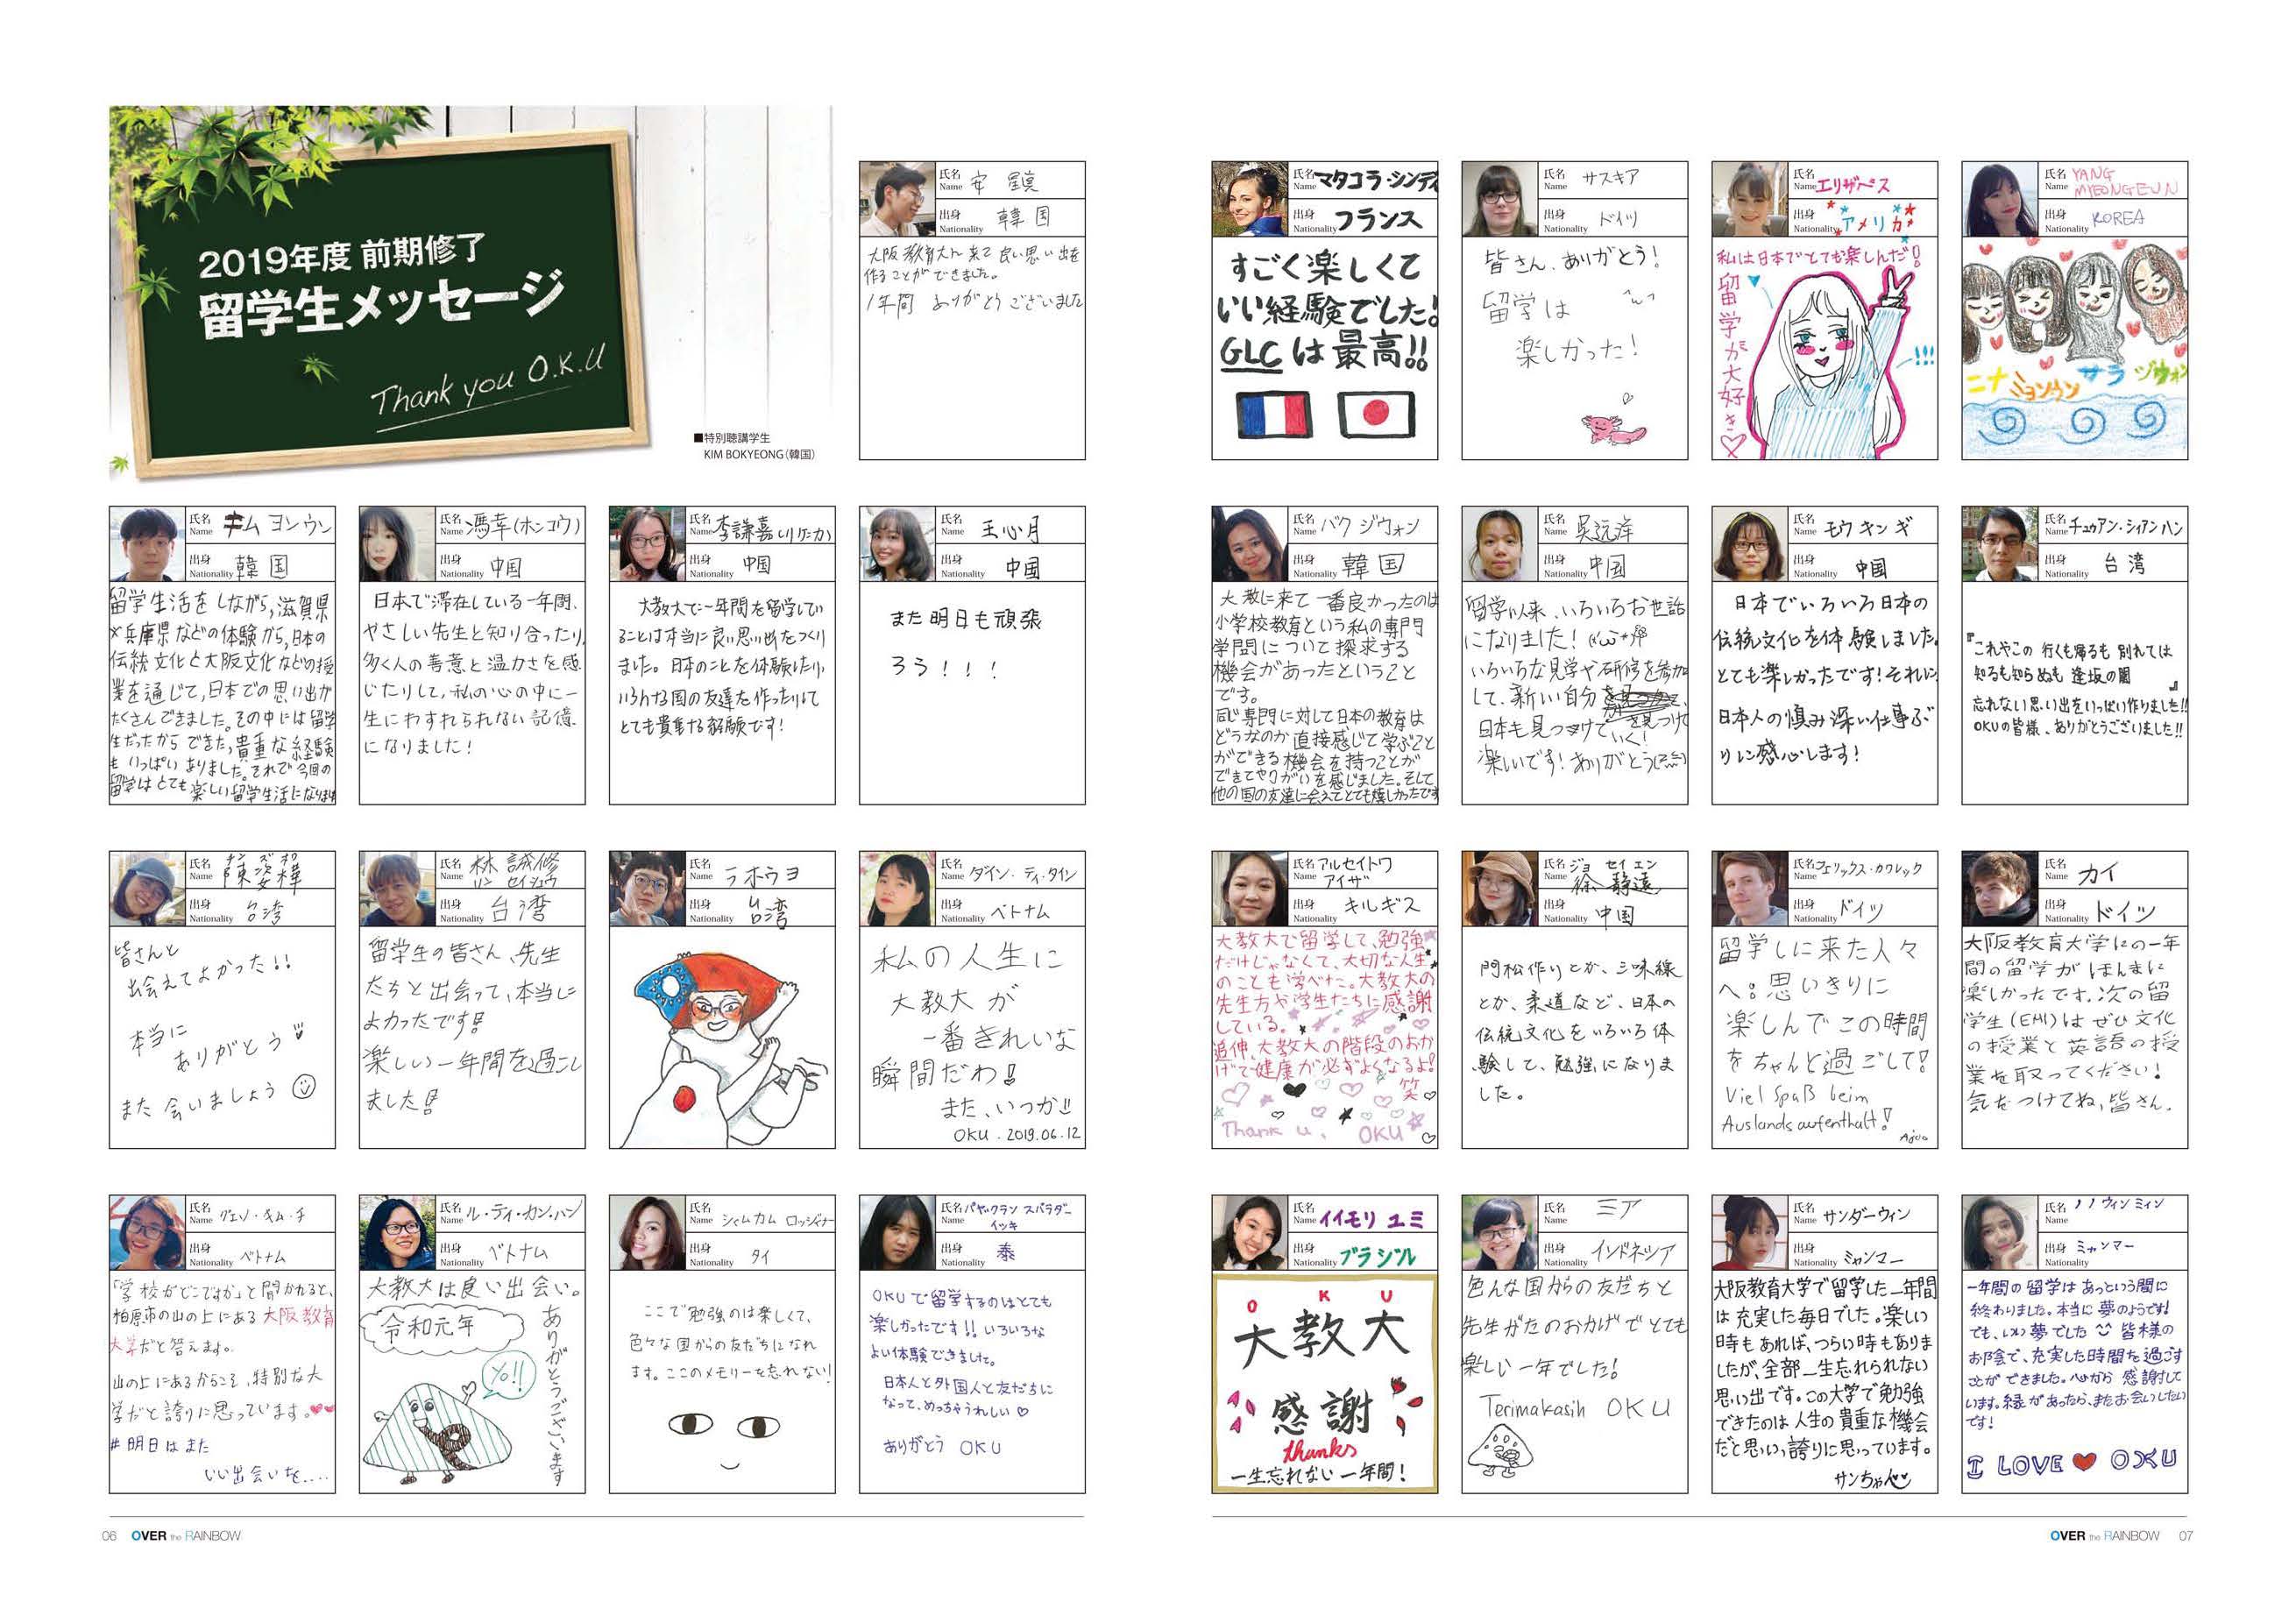 2019年度 前期修了
留学生メッセージ
Thank you O.K.U
■特別聴講学生
KIM BOKYEONG(韓国)
氏名
Name 安
出身
Nationality 韓国
大阪教育大に来て良い思い出を
作ることができました。
1年間 ありがとうございました
氏名
Name キム ヨンウン
出身
Nationality 韓国
留学生活をしながら,滋賀県
や兵庫県などの体験から,日本の
伝統文化と大阪文化などの授
業を通じて,日本での思い出が
たくさんできました。その中には留学
生だったからできた,貴重な経験
もいっぱいありました。それで今回の
留学はとても楽しい留学生活になります
氏名
Name 馮幸(ホンコウ)
出身
Nationality 中国
日本で滞在している一年間、
やさしい先生と知り合ったり,
多く人の善意と温力さを感
じたりして,私の心の中に一
生にわすれられない記憶
になりました!
氏名
Name 李謙嘉(リケンカ)
出身
Nationality 中国
大教大で一年間を留学してい
ることは本当に良い思い出をつくり
ました。日本のことを体験したり,
いろんな国の友達を作ったりして
とても貴重な経験です!
氏名
Name 王心月
出身
Nationality 中国
また明日も頑張
ろう!!!
氏名
Name 陳姿樺
出身
Nationality 台湾
皆さんと
出会えてよかった!!
本当に
ありがとう
また会いましょう
氏名
Name 林 誠修
リン セイシュウ
出身
Nationality 台湾
留学生の皆さん、先生
たちと出会って、本当に
よかったです!!
楽しい一年間を過こし
ました!!
氏名
Name ラホウヨ
出身
Nationality 台湾
氏名
Name ダイン・ティ・タイン
出身
Nationality ベトナム
私の人生に
大教大が
一番きれいな
瞬間だわ!!
また、いつか!!
OKU . 2019.06.12
氏名
Name グエン・キム・チ
出身
Nationality ベトナム
「学校がどこですか」と聞かれると、
柏原市の山の上にある大阪教育
大学だと答えます。
山の上にあるからこそ、特別な大
学だと誇りに思っています。
# 明日はまた
いい出会いを....
氏名
Name ル・ティ・カン・ハン
出身
Nationality ベトナム
大教大は良い出会い。
令和元年
Yo!!
ありがとうございます
氏名
Name シャムカム ロッジャナー
出身
Nationality タイ
ここで勉強のは楽しくて、
色々な国からの友だちになれ
ます。ここのメモリーを忘れない!
氏名
Name パヤックラン スパラダー
イッキ
出身
Nationality 泰
OKUで留学するのはとても
楽しかったです!! いろいろな
よい体験できました。
日本人と外国人と友だちに
なって、めっちゃうれしい♡
ありがとう OKU
06 OVER the RAINBOW
氏名
Name マタコラ・シンディ
出身
Nationality フランス
すごく楽しくて
いい経験でした!
GLCは最高!!
氏名
Name サスキア
出身
Nationality ドイツ
皆さん、ありがとう!
留学は
楽しかった!
氏名
Name エリザベス
出身
Nationality アメリカ
私は日本でとても楽しんだ!
留学が大好き♡
!!!
氏名
Name YANG
MYEONGEUN
出身
Nationality KOREA
ニナ ミョンウン サラ ジウォン
氏名
Name パク ジウォン
出身
Nationality 韓国
大教に来て一番良かったのは
小学校教育という私の専門
学問について探求する
機会があったということ
です。
同じ専門に対して日本の教育は
どうなのか直接感じて学ぶこと
ができる機会を持つことが
できてやりがいを感じました。そして
他の国の友達に会えてとても嬉しかったです
氏名
Name 呉远洋
出身
Nationality 中国
留学以来、いろいろお世話
になりました!
いろいろな見学や研修を参加
して、新しい自分
を見つけて
日本も見つけていく!
楽しいです!ありがとう
氏名
Name モウ キン ギ
出身
Nationality 中国
日本でいろいろ日本の
伝統文化を体験しました。
とても楽しかったです!それに
日本人の慎み深い仕事ぶ
りに感心します!
氏名
Name チュウアン・シィアン ハン
出身
Nationality 台湾
『これやこの 行くも帰るも 別れては
知るも知らぬも 逢坂の関 』
忘れない思い出をいっぱい作りました!!
OKUの皆様、ありがとうございました!!
氏名
Name アルセイトワ
アイザ
出身
Nationality キルギス
大教大で留学して、勉強
だけじゃなくて、大切な人生
のことも学べた。大教大の
先生方や学生たちに感謝
している。
追伸、大教大の階段のおか
げで健康が必ずよくなるよ!
笑
Thank u, OKU
氏名
Name ジョ セイ エン
徐 静遠
出身
Nationality 中国
門松作りとか、三味線
とか、柔道など、日本の
伝統文化をいろいろ体
験して、勉強になりま
した。
氏名
Name フェリックス・カワレック
出身
Nationality ドイツ
留学しに来た人々
へ:思いきりに
楽しんでこの時間
をちゃんと過ごして!
Viel Spaß beim
Auslandsaufenthalt!
氏名
Name カイ
出身
Nationality ドイツ
大阪教育大学にの一年
間の留学がほんまに
楽しかったです。次の留
学生(EMI)はぜひ文化
の授業と英語の授
業を取ってください!
気をつけてね,皆さん.
氏名
Name イイモリ ユミ
出身
Nationality ブラジル
O K U
大教大
感謝
thanks
一生忘れない一年間!
氏名
Name ミア
出身
Nationality インドネシア
色んな国からの友だちと
先生がたのおかげでとても
楽しい一年でした!
Terimakasih OKU
氏名
Name サンダーウィン
出身
Nationality ミャンマー
大阪教育大学で留学した一年間
は充実した毎日でした。楽しい
時もあれば、つらい時もありま
したが、全部一生忘れられない
思い出です。この大学で勉強
できたのは人生の貴重な機会
だと思い、誇りに思っています。
サンちゃん
氏名
Name ノノ ウィン ミィン
出身
Nationality ミャンマー
一年間の留学はあっという間に
終わりました。本当に夢のようです!
でも、いい夢でした 皆様の
お陰で、充実した時間を過ごす
ことができました。心から感謝して
います。縁があったら、またお会いしたい
です!
I LOVE ♥ OKU
OVER the RAINBOW 07